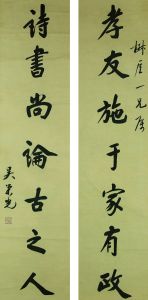 孝友施于家有政
一兄属
詩書尚論古之人
吴荣光